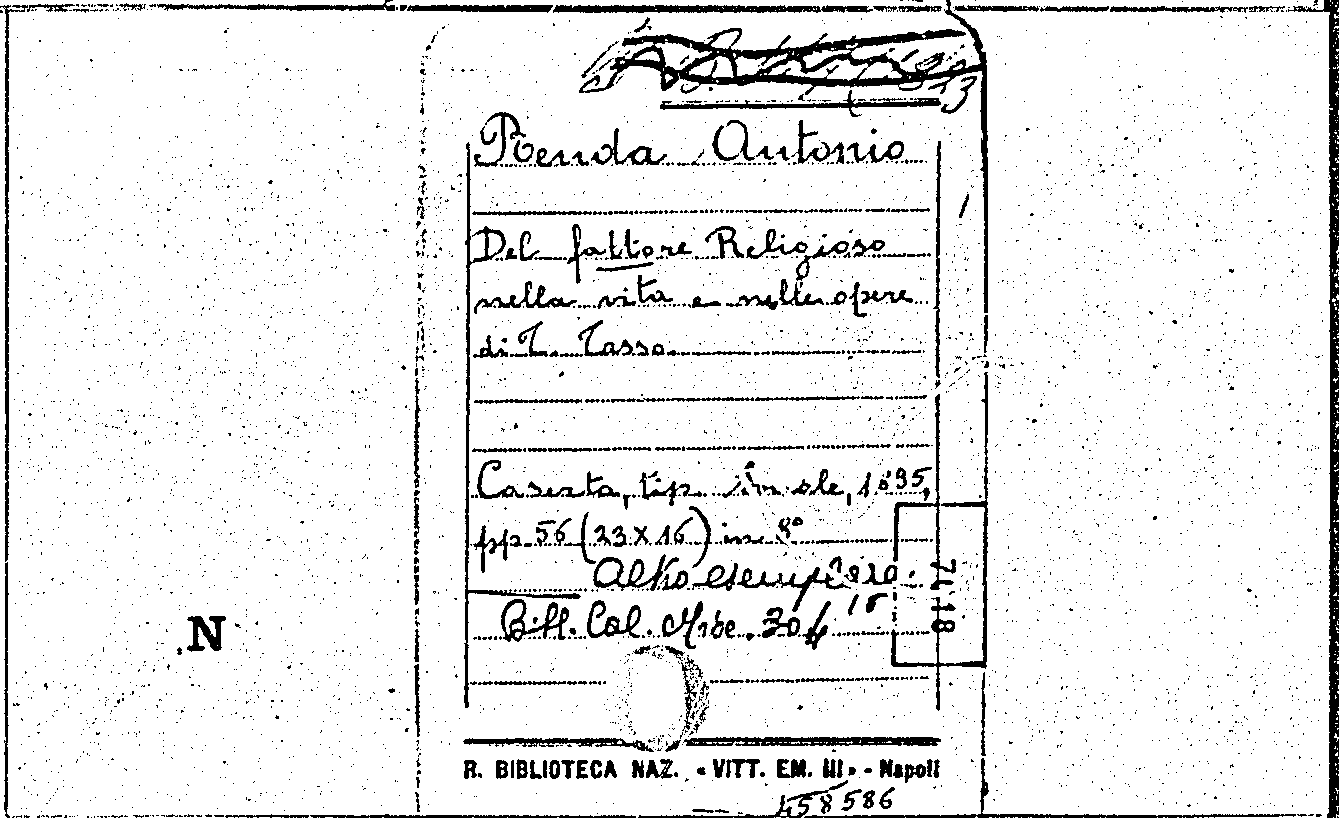 Renda Antonio
Del fattore Religioso
nella vita e nelle opere
di T. Tasso.
Caserta, tip. 1895,
pp. 56 (23 x 16) in 8°
Altro esemplare.
Bibl. Col. Misc. 304
15
7418
N
R. BIBLIOTECA NAZ. «VITT. EM. III» - Napoli
458586